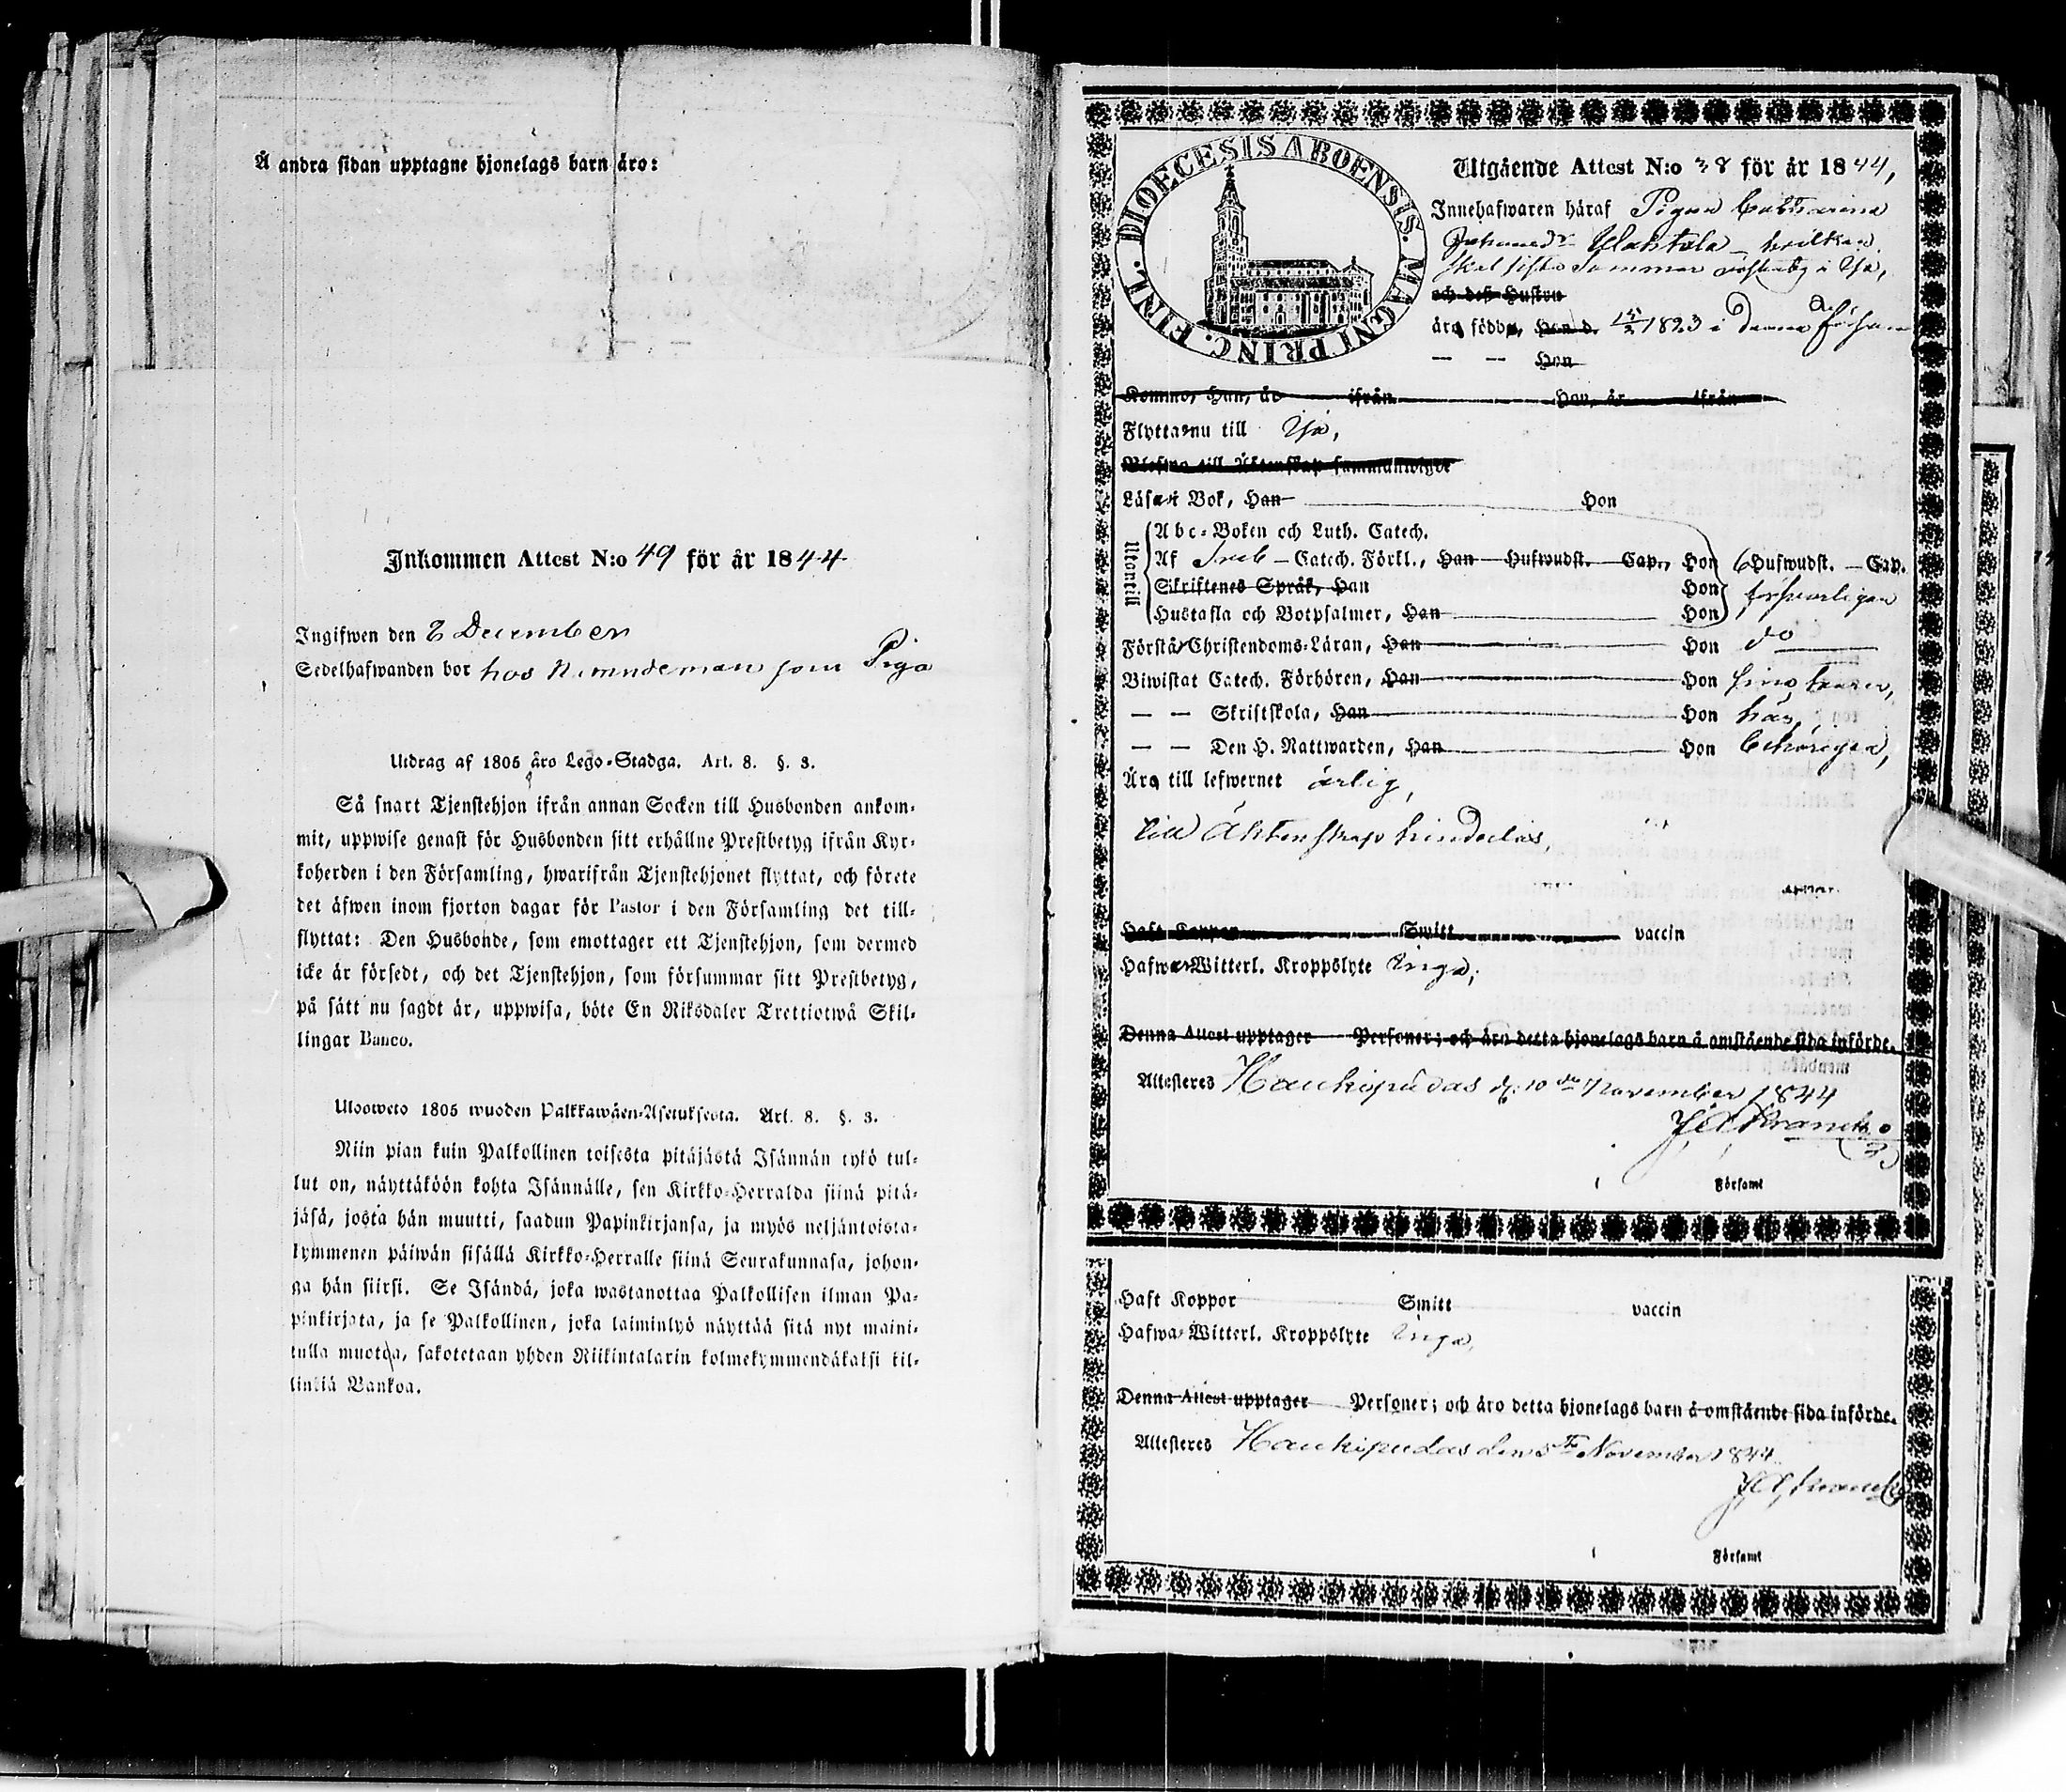 Å andra sidan upptagne hjonelags barn äro:
Inkommen Attest N:o 49 för år 1844
Ingifwen den 8 December
Sedelhafwanden bor hos Nämndeman som Piga
Utdrag af 1805 års Lego-Stadga. Art. 8. §. 3.
Så snart Tjenstehjon ifrån annan Socken till Husbonden ankom-
mit, uppwise genast för Husbonden sitt erhållne Prestbetyg ifrån Kyr-
koherden i den Församling, hwarifrån Tjenstehjonet flyttat, och förete
det äfwen inom fjorton dagar för Pastor i den Församling det till-
flyttat: Den Husbonde, som emottager ett Tjenstehjon, som dermed
icke är försedt, och det Tjenstehjon, som försummar sitt Prestbetyg,
på sätt nu sagdt är, uppwisa, böte En Riksdaler Trettiotwå Skil-
lingar Banco.
Ulosweto 1805 wuoden Palkkawäen-Asetuksesta. Art. 8. §. 3.
Niin pian kuin Palkollinen toisesta pitäjästä Isännän tykö tul-
lut on, näyttäköön kohta Isännälle, sen Kirkko-Herralda siinä pitä-
jäsä, josta hän muutti, saadun Papinkirjansa, ja myös neljäntoista-
kymmenen päiwän sisällä Kirkko-Herralle siinä Seurakunnasa, johon-
ga hän siirsi. Se Isändä, joka wastanottaa Palkollisen ilman Pa-
pinkirjata, ja se Palkollinen, joka laiminlyö näyttää sitä nyt maini-
tulla muotoa, sakotetaan yhden Riikintalarin kolmekymmendäkaksi kil-
linkiä Bankoa.
DIOECESIS ABOENSIS. MAGNI PRINC. FINL.
Utgående Attest N:o 38 för år 1844,
Innehafwaren häraf Pigan Catharina
Johansdr Ulahtala hvilken
skal sista Sommar i Ijo,
och dess Hustru
äro födde, Han d. 15/3 1823 i denna Försam
— — Hon
Kommo, Han, år ifrån Hon, år ifrån
Flytta nu till Ijo,
Blefwo till Äktenskap sammanwigde
Läsa i Bok, Han Hon
Utantill
Abc-Boken och Luth. Catech.
Af Sveb — Catech. Förkl., Han Hufwudst. Cap., Hon 6 Hufwudst. — Cap.
Skriftenes Språk, Han Hon försvarligen
Hustafla och Botpsalmer, Han Hon
Förstå Christendoms-Läran, Han Hon do
Biwistat Catech. Förhören, Han Hon sina
— — Skriftskola, Han Hon här,
— — Den H. Nattwarden, Han Hon behörigen,
Äro till lefwernet ärlig,
till Äktenskap hinderlös,
Haft Koppor Smitt vaccin
Hafwa Witterl. Kroppslyte Inga,
Denna Attest upptager Personer; och äro detta hjonelags barn å omstående sida införde.
Attesteres Haukipudas d. 10de November 1844
Församl
Haft Koppor Smitt vaccin
Hafwa Witterl. Kroppslyte Inga,
Denna Attest upptager Personer; och äro detta hjonelags barn å omstående sida införde.
Attesteres Haukipudas den 5te November 1844
Församl